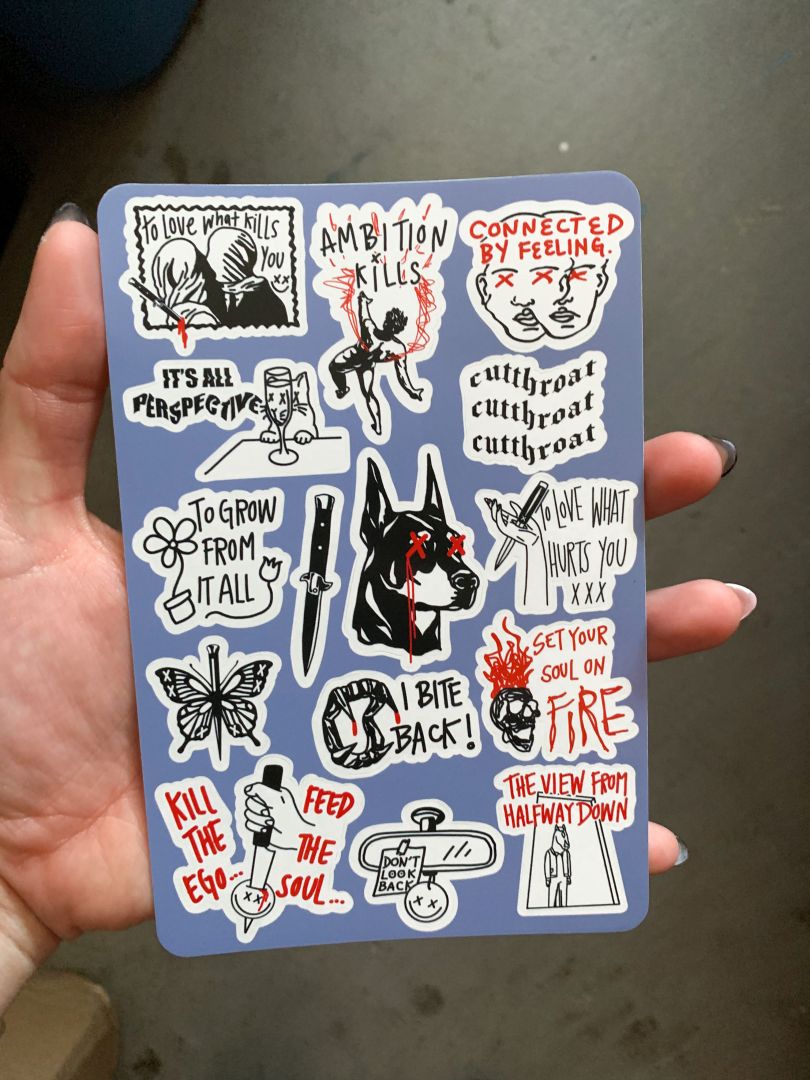 to love what kills
you
AMBITION
KILLS
CONNECTED
BY FEELING.
IT'S ALL
PERSPECTIVE
cutthroat
cutthroat
cutthroat
TO GROW
FROM
IT ALL
TO LOVE WHAT
HURTS YOU
XXX
I BITE
BACK!
SET YOUR
SOUL ON
FIRE
KILL
THE
EGO...
FEED
THE
SOUL...
DON'T
LOOK
BACK
THE VIEW FROM
HALFWAY DOWN